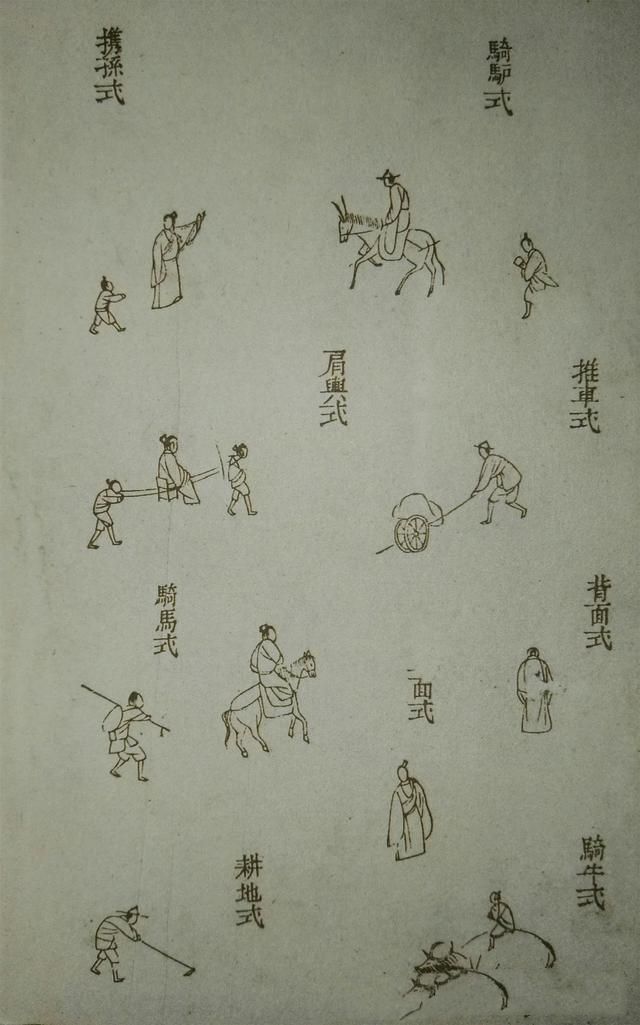 騎驢式
攜孫式
推車式
肩輿式
背面式
面式
騎馬式
騎牛式
耕地式